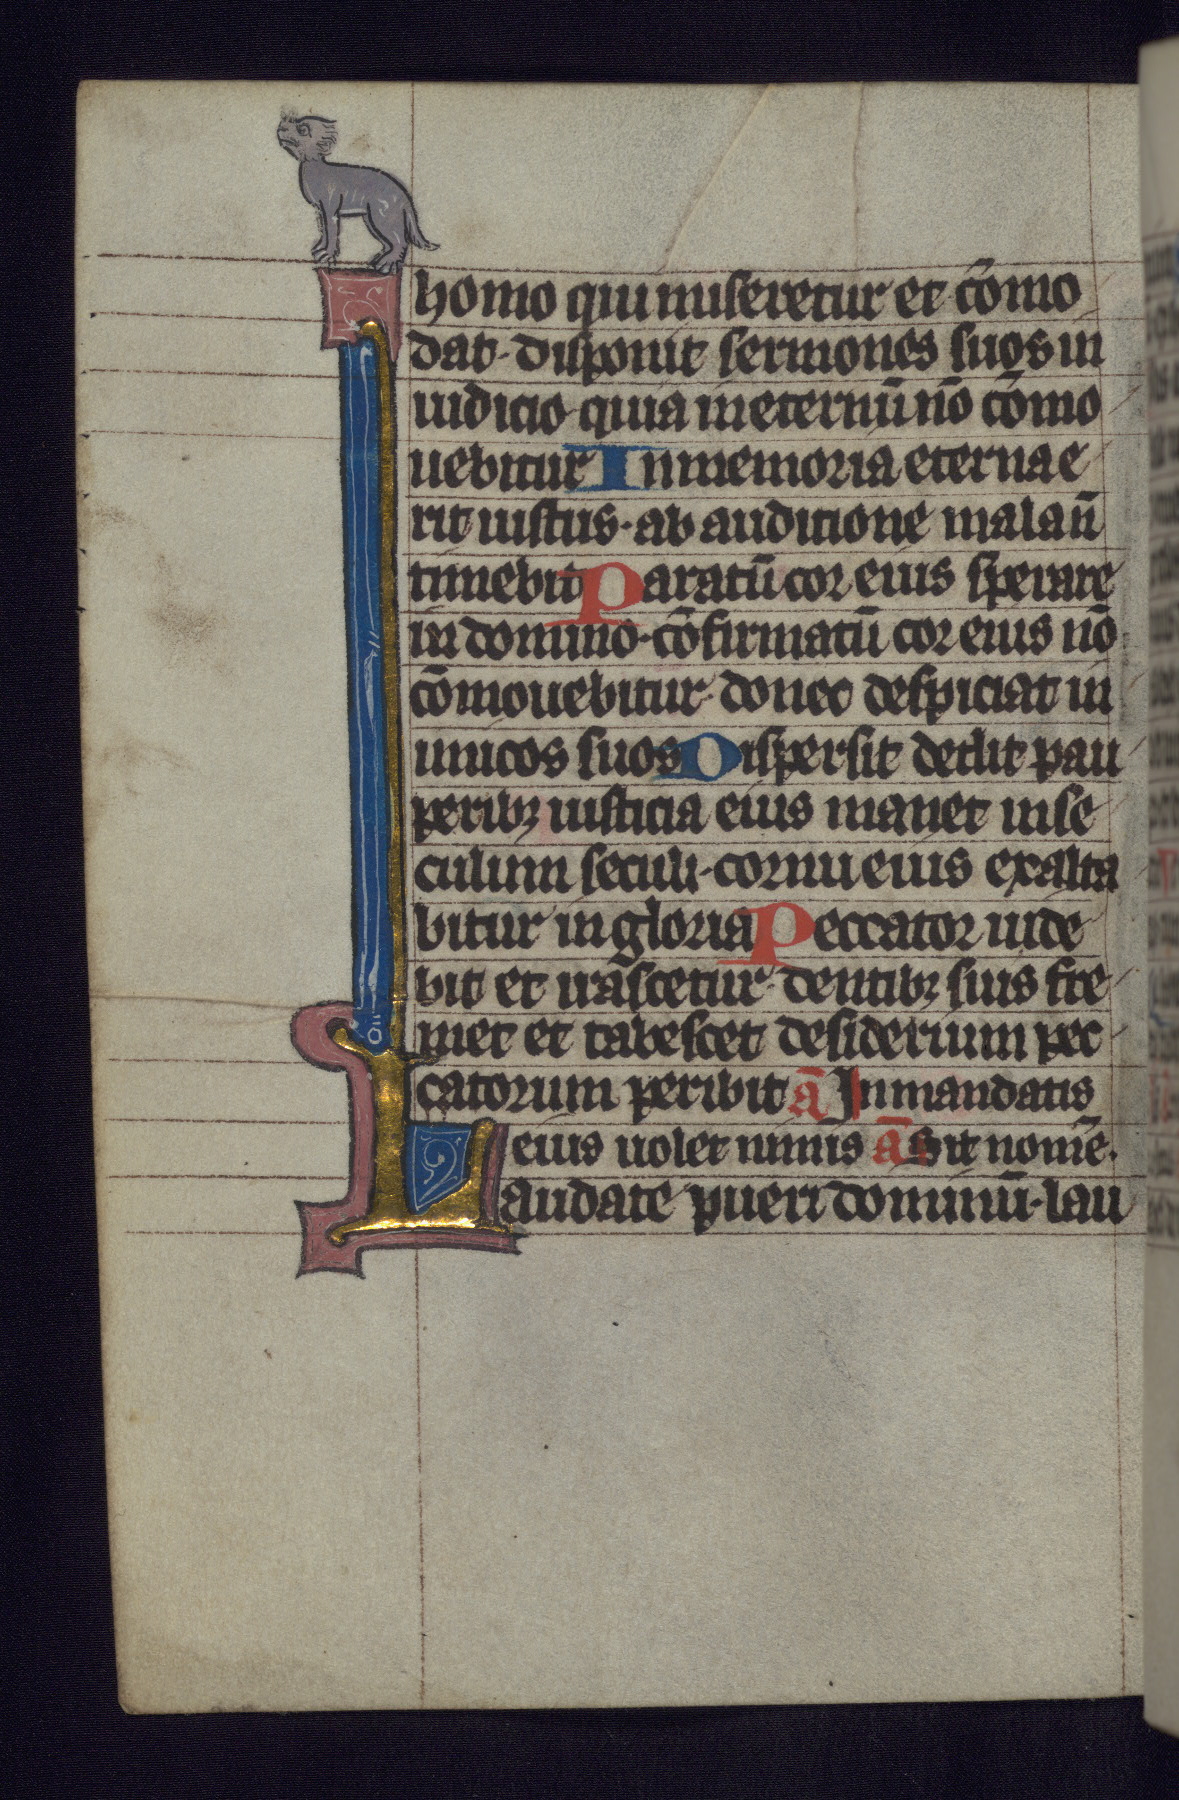 homo qui miseretur et cōmo
dat· disponit sermones suos in
iudicio quia in eternū nō cōmo
uebitur In memoria eterna e
rit iustus· ab auditione mala nō
timebit Paratū cor eius sperare
in domino· cōfirmatū cor eius nō
cōmouebitur· donec despiciat in
imicos suos Dispersit dedit pau
peribꝫ iusticia eius manet in se
culum seculi· cornu eius exalta
bitur in gloria Peccator uide
bit et irascetur· dentibꝫ suis fre
met et tabescet desiderium pec
catorum peribit ā In mandatis
eius uolet nimis ā Sit nomē·
Laudate pueri dominū· lau